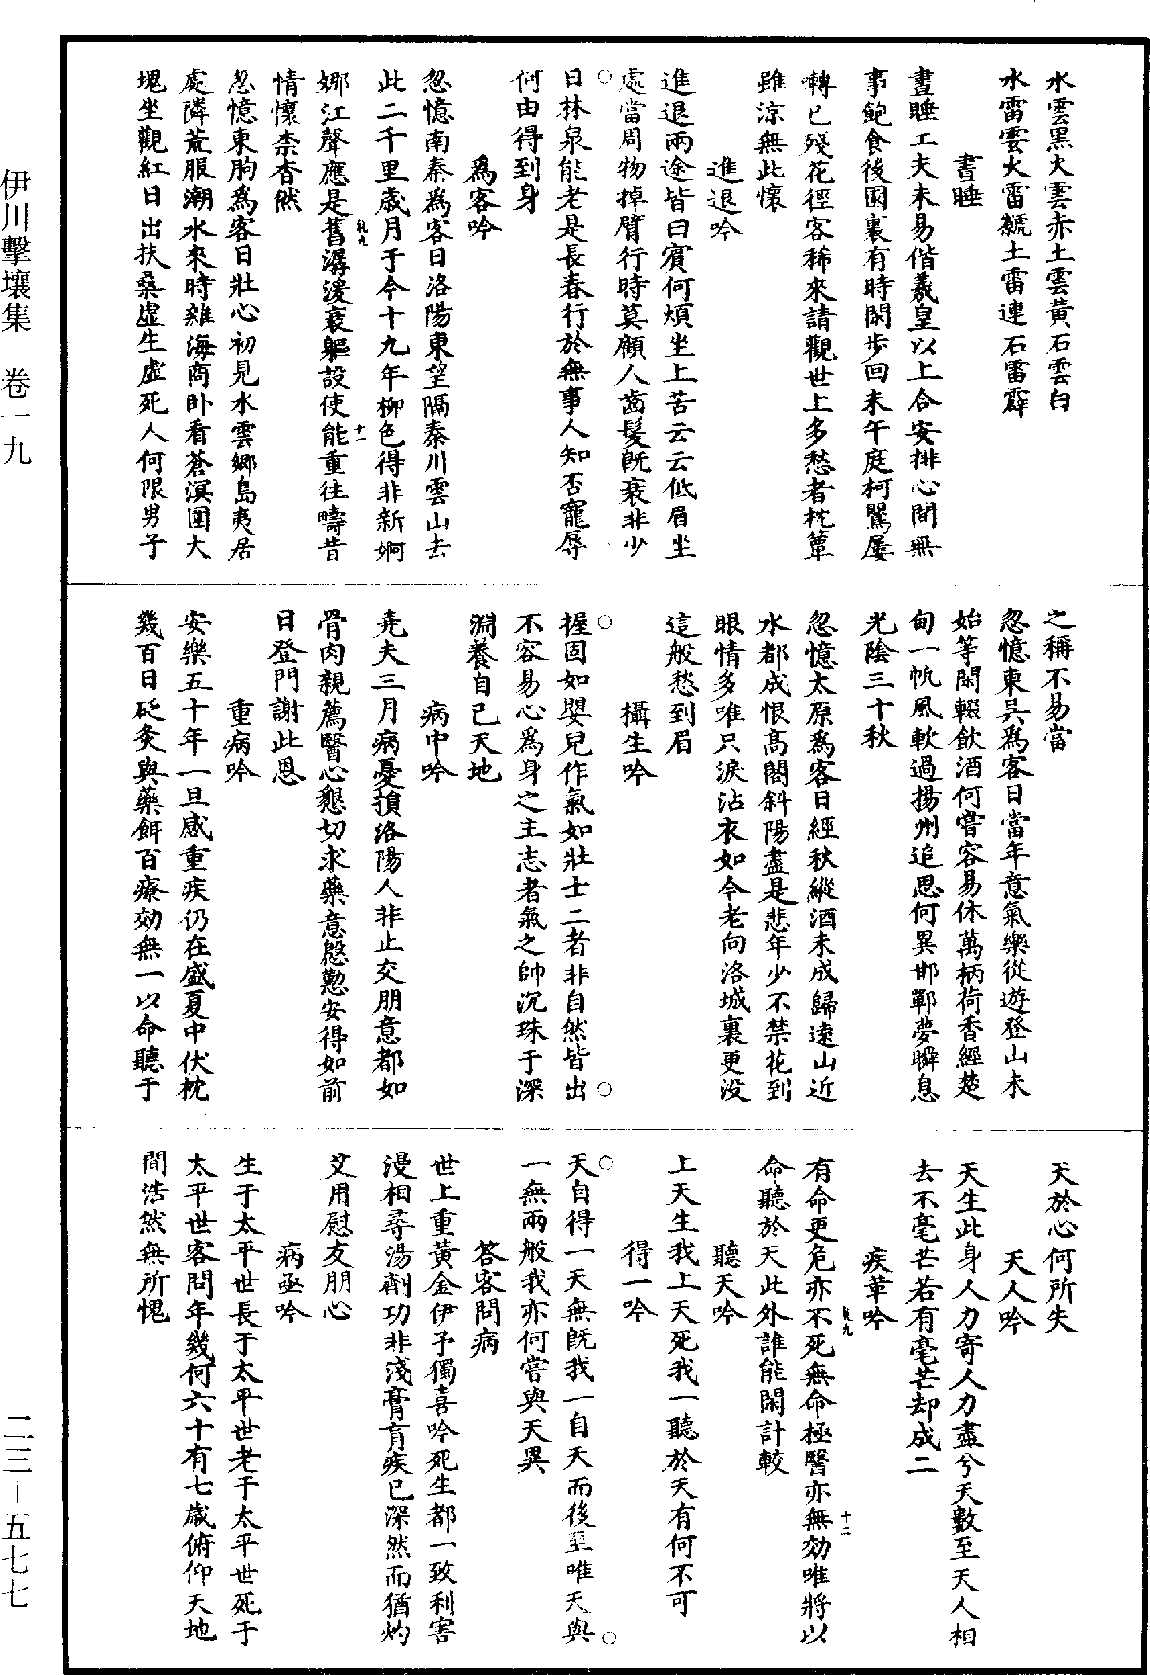 水雲黑火雲赤土雲黃石雲白
水雷雲火雷虩土雷連石雷霹
晝睡
晝睡工夫未易偕羲皇以上合安排心間無
事飽食後園裏有時閑步回未午庭柯鶯屢
囀已殘花徑客稀來請觀世上多愁者枕簟
雖涼無此懷
進退吟
進退兩途皆曰賓何煩坐上苦云云低眉坐
處當周物掉臂行時莫顧人齒髮既衰非少
日林泉能老是長春行於無事人知否寵辱
何由得到身
爲客吟
忽憶南秦爲客日洛陽東望隔秦川雲山去
此二千里歲月于今十九年柳色得非新婀
娜江聲應是舊潺湲衰軀設使能重往疇昔
情懷柰杳然
忽憶東朐爲客日壯心初見水雲鄉島夷居
處隣荒服潮水來時雜海商卧看蒼溟圍大
塊坐觀紅日出扶桑虛生虛死人何限男子
之稱不易當
忽憶東吳爲客日當年意氣樂從遊登山未
始等閑輟飲酒何嘗容易休萬柄荷香經楚
甸一帆風軟過揚州追思何異邯鄲夢瞬息
光陰三十秋
忽憶太原爲客日經秋縱酒未成歸遠山近
水都成恨高閣斜陽盡是悲年少不禁花到
眼情多唯只淚沾衣如今老向洛城裏更没
這般愁到眉
攝生吟
握固如嬰兒作氣如壯士二者非自然皆出
不容易心爲身之主志者氣之帥沉珠于深
淵養自己天地
病中吟
堯夫三月病憂損洛陽人非止交朋意都如
骨肉親薦醫心懇切求藥意慇懃安得如前
日登門謝此恩
重病吟
安樂五十年一旦感重疾仍在盛夏中伏枕
幾百日砭灸與藥餌百療効無一以命聽于
天於心何所失
天人吟
天生此身人力寄人力盡兮天數至天人相
去不毫芒若有毫芒却成二
疾革吟
有命更危亦不死無命極醫亦無効唯將以
命聽於天此外誰能閑計較
聽天吟
上天生我上天死我一聽於天有何不可
得一吟
天自得一天無既我一自天而後至唯天與
一無兩般我亦何嘗與天異
答客問病
世上重黃金伊予獨喜吟死生都一致利害
漫相尋湯劑功非淺膏肓疾已深然而猶灼
艾用慰友朋心
病亟吟
生于太平世長于太平世老于太平世死于
太平世客問年幾何六十有七歲俯仰天地
間浩然無所愧
伊川擊壤集　卷一九
二三－五七七